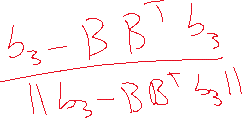 b₃ - B Bᵀ b₃
‖ b₃ - B Bᵀ b₃ ‖